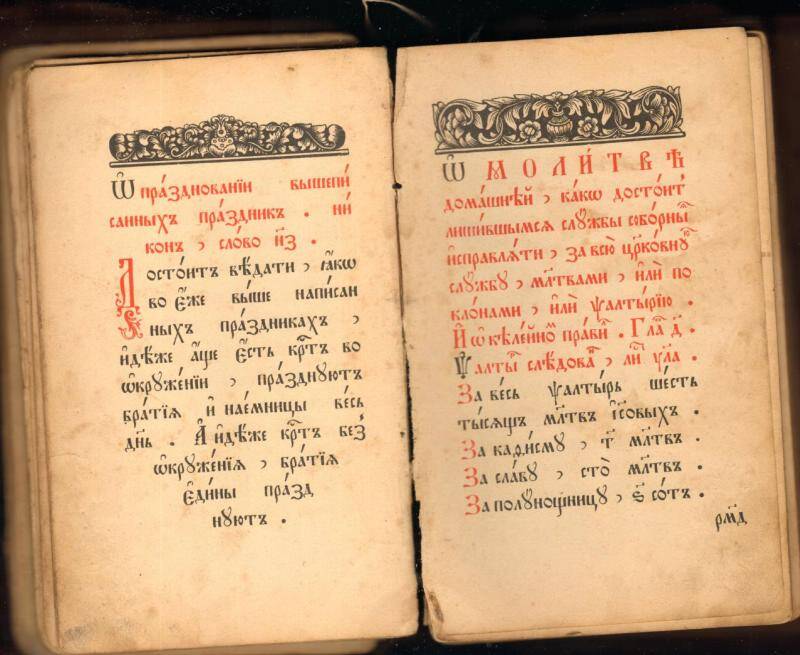 Ѽ пра́зднованїи вышепи́
санныхъ пра́здникъ . ни́
конъ , сло́во н҃з .
Досто́итъ вѣ́дати , ꙗ҆́кѡ
во є҆́же вы́ше написан
ныхъ пра́здникахъ ,
и҆дѣ́же а҆́ще є҆́сть кр҃тъ во
ѡ҆кружє́нїи , пра́зднꙋютъ
бра́тїѧ и҆ нае́мницы ве́сь
дн҃ь . А҆ и҆дѣ́же кр҃тъ без̾
ѡ҆кружє́нїѧ , бра́тїѧ
є҆ди́ны пра́зд
нꙋютъ .
Ѽ М О Л И́ Т В Ѣ
дома́шнѣй , ка́кѡ досто́итъ
лиши́вшымсѧ слꙋ́жбы собо́рныѧ
и҆справлѧ́ти , за всю̀ црко́внꙋю
слꙋ́жбꙋ , мл҃твами , и҆лѝ по
кло́нами , и҆лѝ ѱалты́рїю .
И҆ ѡ҆ кѐлейно́м пра́ви . Гла̀ д҃ .
Ѱалты́ слѣ́дова , ли́ у҆л҃а .
За ве́сь ѱалты́рь ше́сть
ты́сѧщъ мл҃твъ і҆сꙋ́совыхъ .
За каѳі́смꙋ , т҃ мл҃твъ .
За сла́вꙋ , сто̀ мл҃твъ .
За полꙋно́щницꙋ , ѕ҃ со́тъ .
рм҃д